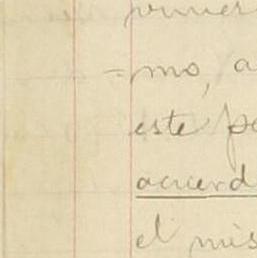 primer
=mo, a
este pe
acuerd
el mis